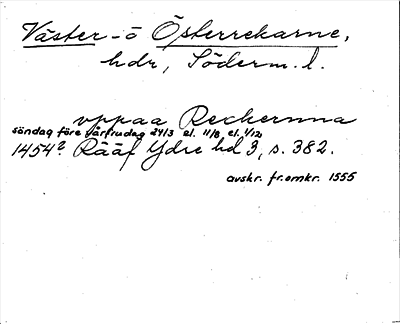 Väster- o Österrekarne,
hdr, Söderm. l.
uppaa Rechernna
söndag före vårfrudag 24/3 el. 11/8, el. 1/12,
1454? Rääf Ydre hd 3, s. 382.
avskr. fr. omkr. 1555